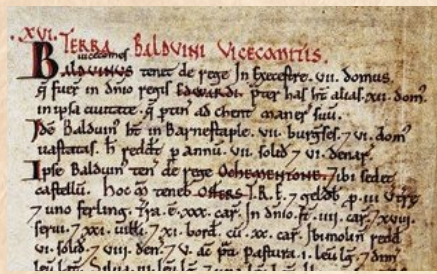 .XVI. TERRA BALDVINI VICECOMITIS.
vicecomes
BALDVINVS tenet de rege In Execestre. VII. domus.
q̃ fuer̃ in dñio regis EDWARDI. p̃ter has ht̃ alias. XII. dom̃
in ipsa ciuitate. q̃ ptin̄ ad MANER suū.
Idē Balduin̄ ht̃ in Barnestaple. VII. burgses. ⁊ VI. dom̃
uastatas. h̃ reddt̃ p annū. VII. solid ⁊ VI. denar̃.
Ipse Balduin̄ ten̄ de rege OCHEMENTONE. ⁊ ibi sedet
castellū. Hoc m̃ teneb̃ OSFERS T.R.E. ⁊ geldb̃ p. III. v̄ træ
⁊ uno ferling. Tra. ē. XXX. car̃. In dñio. st̃. IIII. car̃. ⁊ XVIII.
serui. ⁊ XXI. uilłi. ⁊ XI. bord. cū. XX. car̃. Ibi molin̄ redd
VI. solid. ⁊ VIII. den̄. ⁊ V. ac̃ p̃ti. Pastura. I. leu lg̃. ⁊ dim̃
leu lat̃. Silua. III. leu lg̃